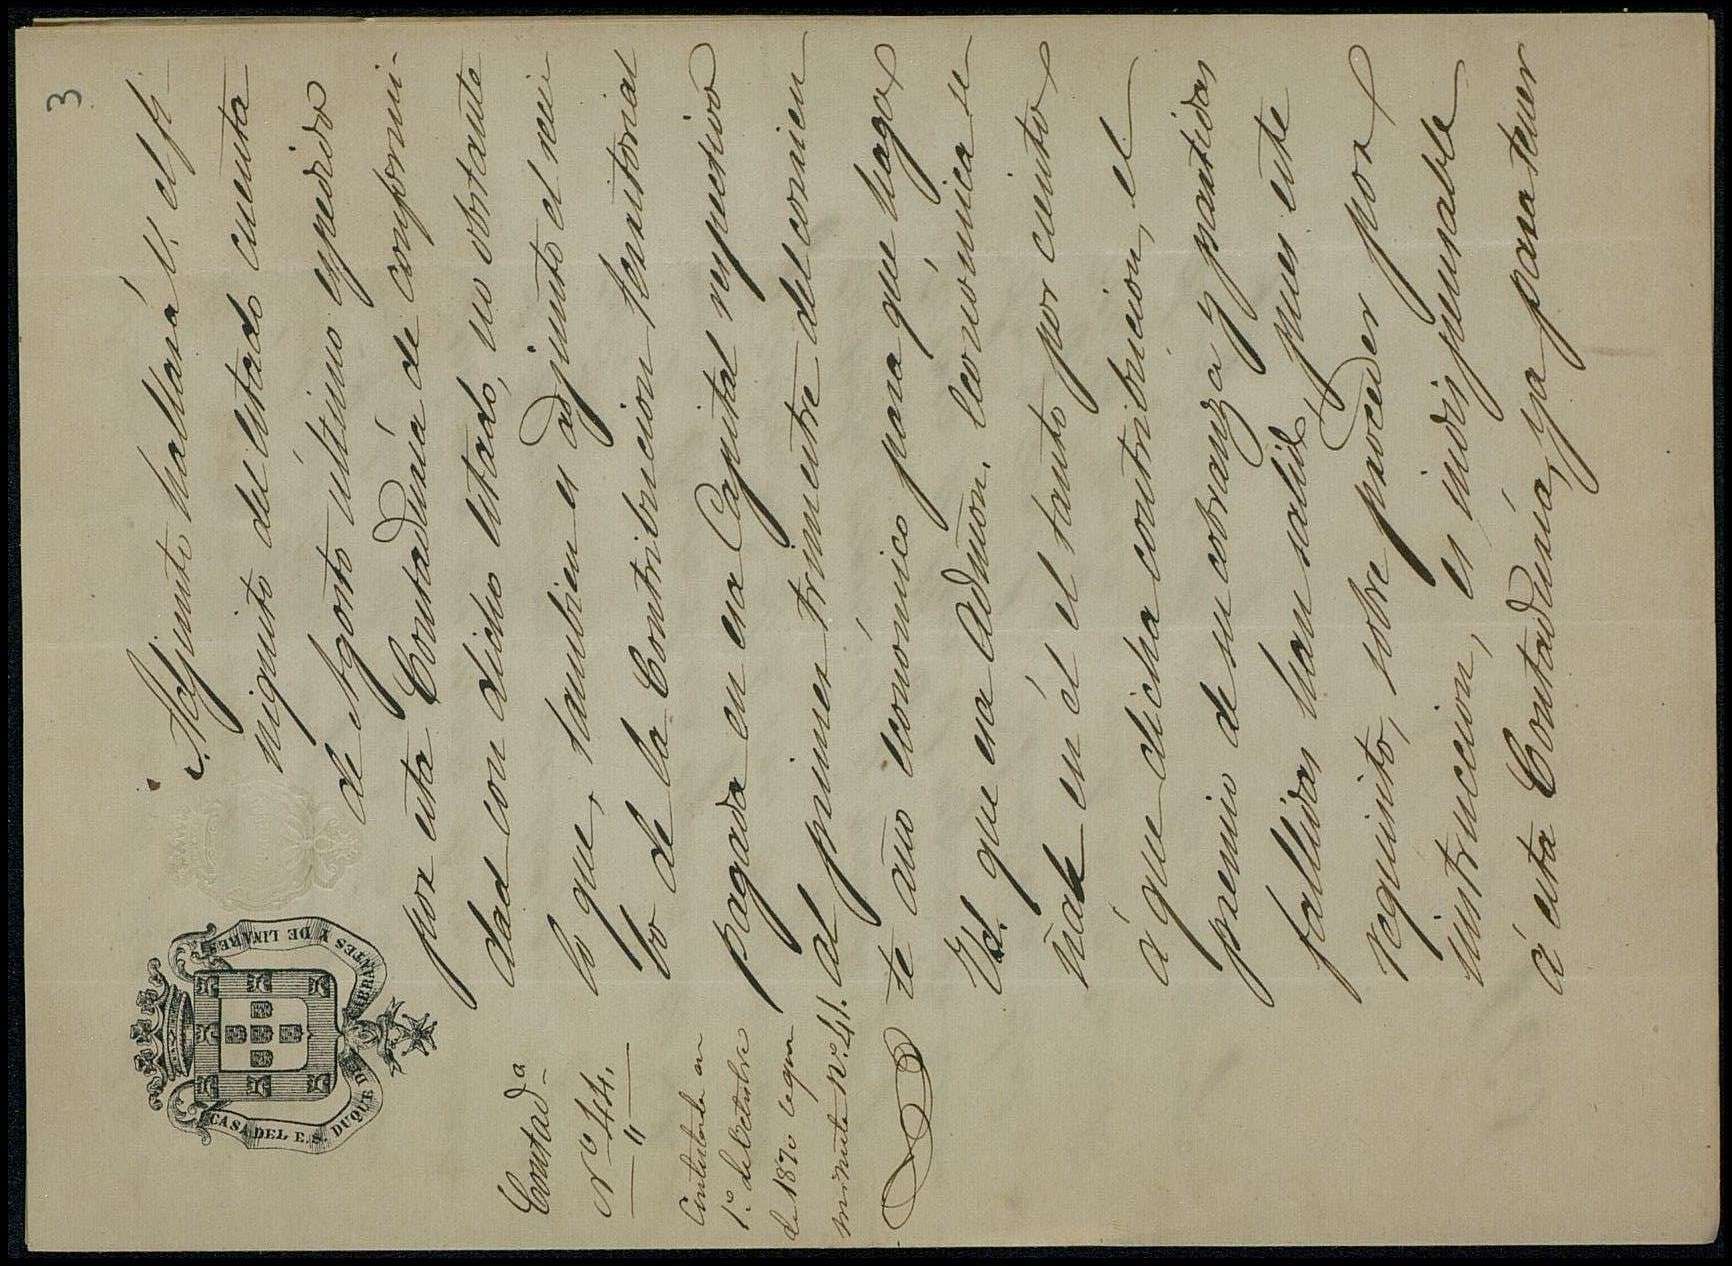 3
CASA DEL E.S. DUQUE DE ABRANTES Y DE LINARES
Contad.ª
Nº 44.
Contestada en
1.º de Octubre
de 1870 segun
minuta Nº 41.
Adjunto hallará V. el fi-
niquito del estado cuenta
de Agosto último espedido
por esta Contaduría de conformi-
dad con dicho estado, no obstante
lo que, tambien es adjunto el reci
bo de la Contribucion territorial
pagada en esa Capital respectivo
al primer trimestre del corrien
te año economico para que haga
Vd. que esa Admon. Economica se
ñale en él el tanto por ciento
á que dicha contribucion, el
premio de su cobranza y partidas
fallidas han salido, pues este
requisito, sobre proceder por
instruccion, es indispensable
á esta Contaduría, ya para tener